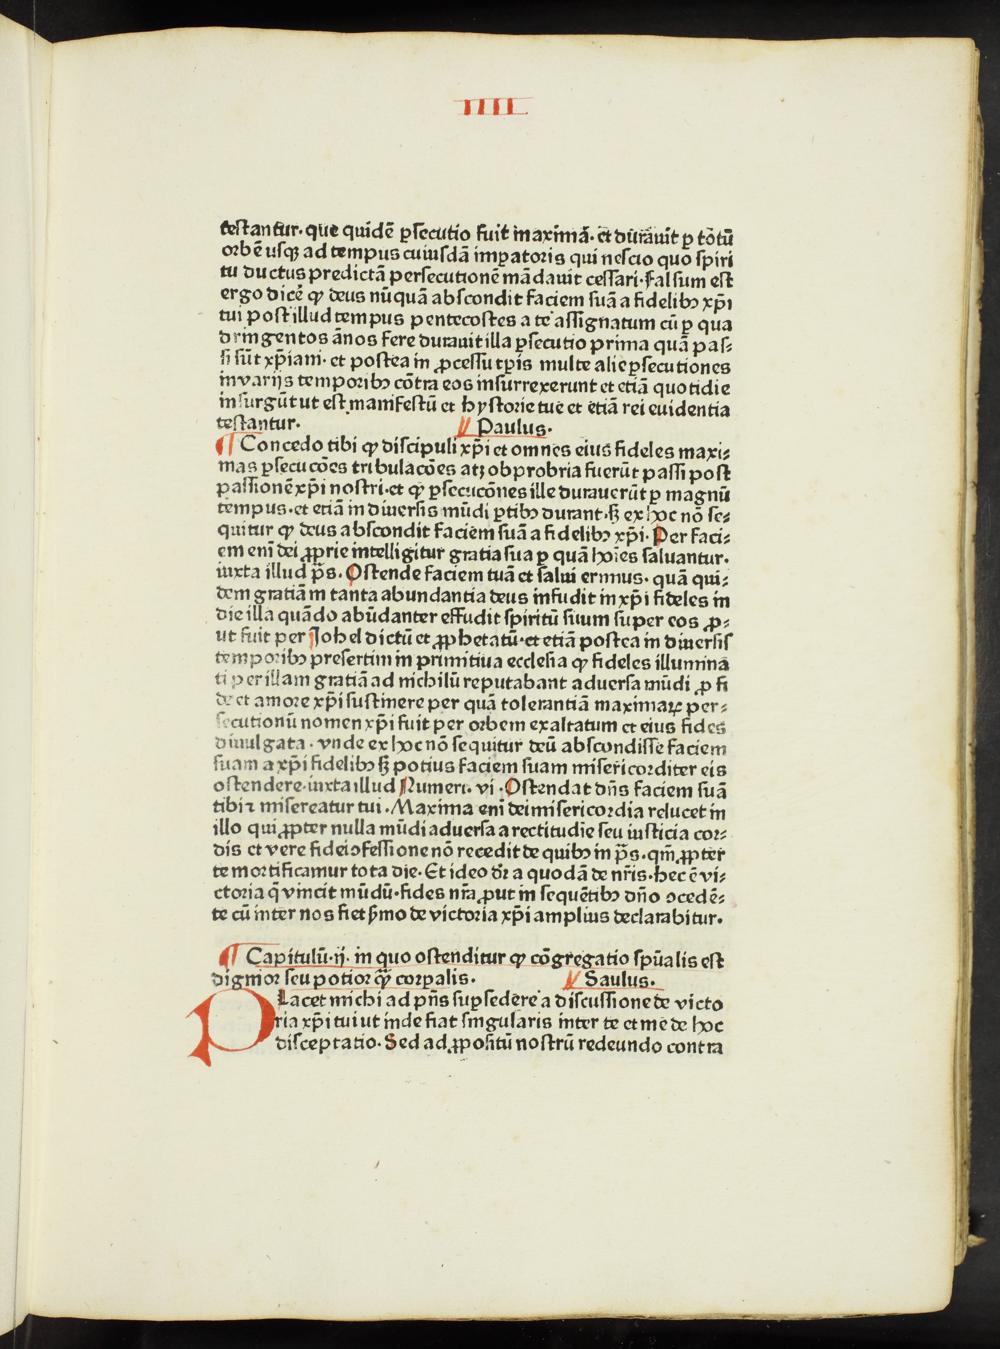 IIII
testantur. que quidē ꝑsecutio fuit maxima. et durauit ꝑ totū
orbē usqꝫ ad tempus cuiusdā imꝑatoris qui nescio quo spiri
tu ductus predictā persecutionē mādauit cessari. Falsum est
ergo dicē ꝙ deus nūquā abscondit faciem suā a fidelibꝫ xp̄i
tui post illud tempus pentecostes a te assignatum cū ꝑ qua
dringentos ānos fere durauit illa ꝑsecutio prima quā pas⸗
si sūt xp̄iani. et postea in ꝓcessu tꝑis multe alie ꝑsecutiones
in varijs temporibꝫ cōtra eos insurrexerunt et etiā quotidie
insurgūt ut est manifestū et hystorie tue et etiā rei euidentia
testantur. Paulus.
¶ Concedo tibi ꝙ discipuli xp̄i et omnes eius fideles maxi⸗
mas ꝑsecucōes tribulacōes atꝫ obprobria fuerūt passi post
passionē xp̄i nostri. et ꝙ ꝑsecucōnes ille durauerūt ꝑ magnū
tempus. et etiā in diuersis mūdi ꝑtibꝫ durant. sꝫ ex hoc nō se⸗
quitur ꝙ deus abscondit faciem suā a fidelibꝫ xp̄i. Per faci⸗
em eni᷄ dei ꝓprie intelligitur gratia sua ꝑ quā hoīes saluantur.
iuxta illud p̄s. Ostende faciem tuā et salui erimus. quā qui⸗
dem gratiā in tanta abundantia deus infudit in xp̄i fideles in
die illa quādo abūdanter effudit spiritū suum super eos ꝓ⸗
ut fuit per Johel dictū et ꝓphetatū. et etiā postea in diuersis
temporibꝫ presertim in primitiua ecclesia ꝙ fideles illuminā
ti per illam gratiā ad nichilū reputabant aduersa mūdi ꝓ fi
de et amore xp̄i sustinere per quā tolerantiā maximaꝝ per⸗
secutionū nomen xp̄i fuit per orbem exaltatum et eius fides
diuulgata. vnde ex hoc nō sequitur deū abscondisse faciem
suam a xp̄i fidelibꝫ sꝫ potius faciem suam misericorditer eis
ostendere. iuxta illud Numeri. vi. Ostendat dn̄s faciem suā
tibi ⁊ misereatur tui. Maxima eni᷄ dei misericordia relucet in
illo qui ꝓpter nulla mūdi aduersa a rectitudīe seu iusticia cor⸗
dis et vere fidei ꝯfessione nō recedit de quibꝫ in p̄s. qm̄ ꝓpter
te mortificamur tota die. Et ideo dr̄ a quodā de nr̄is. hec ē vi⸗
ctoria q̄ vincit mūdū. fides nr̄a ꝓut in sequētibꝫ dn̄o ꝯcedē⸗
te cū inter nos fiet ẜmo de victoria xp̄i amplius declarabitur.
¶ Capitulū. ij. in quo ostenditur ꝙ cōgregatio spūalis est
dignior seu potior qͣ̄ corꝑalis. Saulus.
PLacet michi ad pn̄s suꝑsedere a discussione de victo
ria xp̄i tui ut inde fiat singularis inter te et me de hoc
disceptatio. Sed ad ꝓpositū nostrū redeundo contra